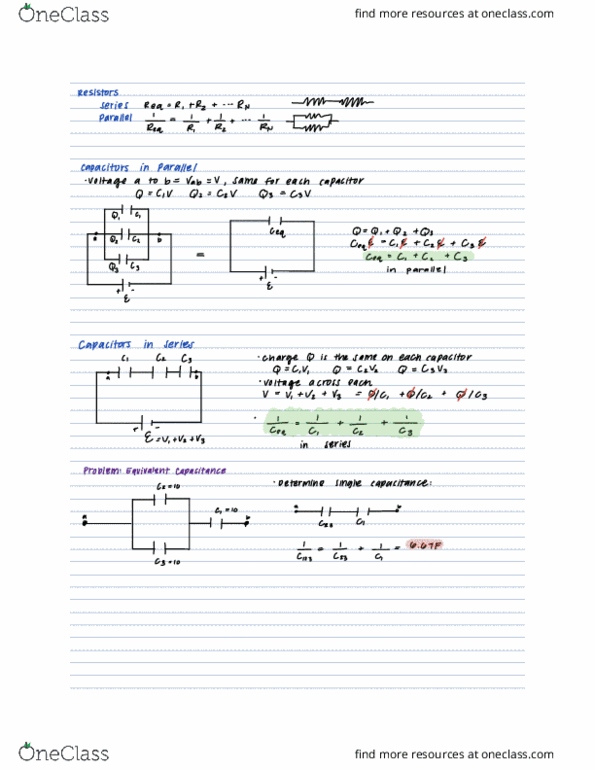 OneClass
find more resources at oneclass.com
Resistors
series Req = R1 + R2 + ... RN
parallel 1/Req = 1/R1 + 1/R2 + ... 1/RN
Capacitors in Parallel
• voltage a to b = Vab = V, same for each capacitor
Q = C1V Q2 = C2V Q3 = C3V
Q1 C1
a Q2 C2 b
Q3 C3
+ -
ε
=
Ceq
+ -
ε
Q = Q1 + Q2 + Q3
Ceq ε = C1 ε + C2 ε + C3 ε
Ceq = C1 + C2 + C3
in parallel
Capacitors in series
C1 C2 C3
a b
+ -
ε = V1 + V2 + V3
• charge Q is the same on each capacitor
Q = C1V1 Q = C2V2 Q = C3V3
• voltage across each
V = V1 + V2 + V3 = Q/C1 + Q/C2 + Q/C3
• 1/Ceq = 1/C1 + 1/C2 + 1/C3
in series
Problem: Equivalent Capacitance
C2 = 10
a C1 = 10 b
C3 = 10
• Determine single capacitance:
a b
C23 C1
1/C123 = 1/C23 + 1/C1 = 6.67F
OneClass
find more resources at oneclass.com